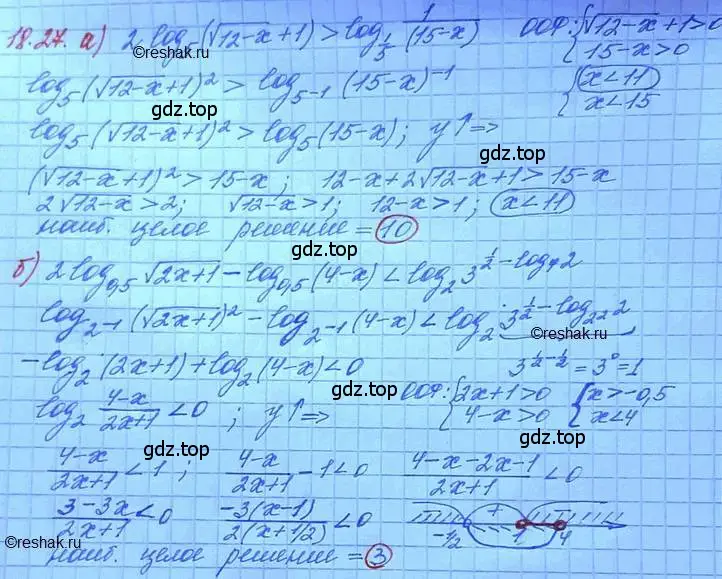 18.27. а) 2 log₅(√12-x+1) > log_{1/5} 1/(15-x)   ООФ: {√12-x+1>0
15-x>0
©reshak.ru
log₅(√12-x+1)² > log_{5⁻¹}(15-x)⁻¹   {x<11
x<15
gdz.top
log₅(√12-x+1)² > log₅(15-x); y↑⇒
gdz.top
(√12-x+1)² > 15-x; 12-x+2√12-x+1>15-x
2√12-x>2; √12-x>1; 12-x>1; x<11
наиб. целое решение = 10
gdz.top
б) 2log₀,₅√2x+1 - log₀,₅(4-x) < log₂3^{1/2-log₄2}
log_{2⁻¹}(√2x+1)² - log_{2⁻¹}(4-x) < log₂ 3^{1/2-log_{2²}2}
©reshak.ru
-log₂(2x+1)+log₂(4-x)<0   3^{1/2-1/2}=3⁰=1
gdz.top
log₂ (4-x)/(2x+1) <0; y↑⇒   ООФ: {2x+1>0 {x>-0,5
4-x>0 x<4
gdz.top
(4-x)/(2x+1) <1; (4-x)/(2x+1) -1<0   (4-x-2x-1)/(2x+1) <0
(3-3x)/(2x+1) <0   -3(x-1)/2(x+1/2) <0   + -1/2 1 4
©reshak.ru
наиб. целое решение = 3
gdz.top